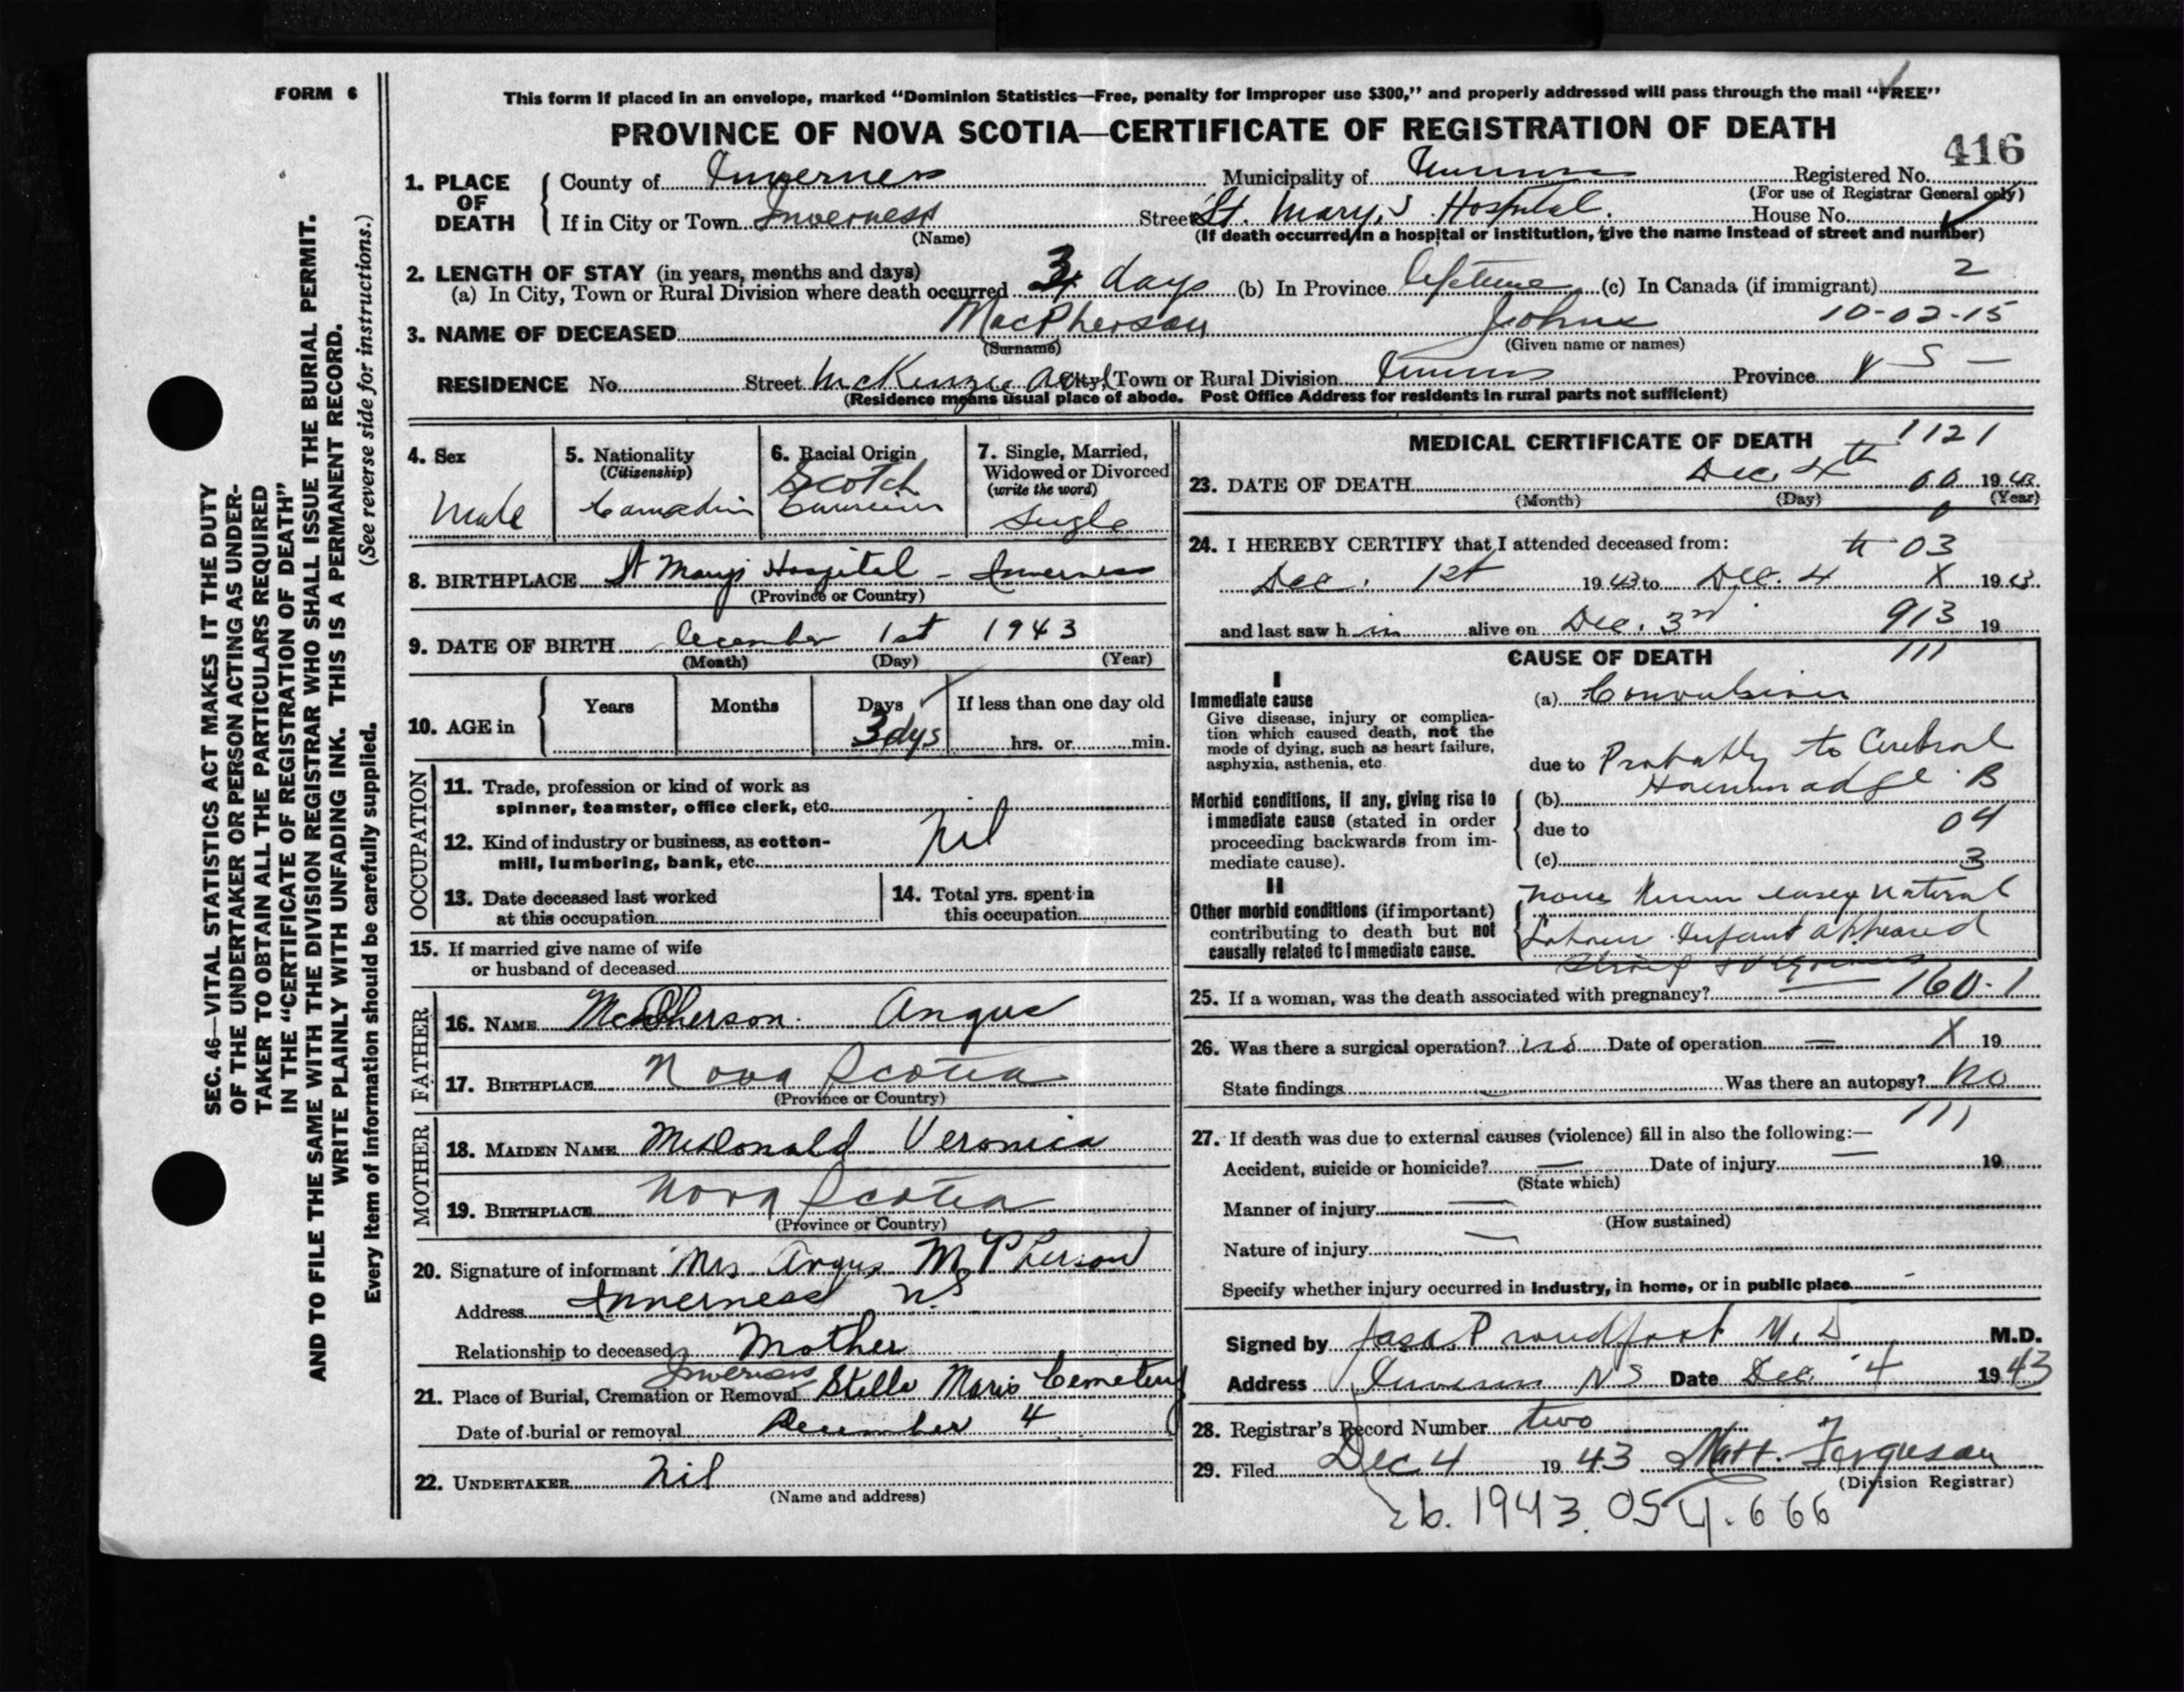 FORM 6
This form if placed in an envelope, marked "Dominion Statistics—Free, penalty for improper use $300," and properly addressed will pass through the mail "FREE"
PROVINCE OF NOVA SCOTIA—CERTIFICATE OF REGISTRATION OF DEATH
416
1. PLACE OF DEATH
County of Inverness Municipality of Registered No.
(For use of Registrar General only)
If in City or Town Inverness Street St. Mary's Hospital. House No.
(Name) (If death occurred in a hospital or institution, give the name instead of street and number)
2. LENGTH OF STAY (in years, months and days)
(a) In City, Town or Rural Division where death occurred 3 days (b) In Province lifetime (c) In Canada (if immigrant) 2
3. NAME OF DECEASED MacPherson John 10-02-15
(Surname) (Given name or names)
RESIDENCE No. Street McKenzie City, Town or Rural Division Province N S —
(Residence means usual place of abode. Post Office Address for residents in rural parts not sufficient)
4. Sex
Male
5. Nationality
(Citizenship)
Canadian
6. Racial Origin
Scotch
7. Single, Married,
Widowed or Divorced
(write the word)
Single
8. BIRTHPLACE St Marys Hospital - Inverness
(Province or Country)
9. DATE OF BIRTH December 1st 1943
(Month) (Day) (Year)
10. AGE in Years Months Days If less than one day old
3 dys hrs. or min.
OCCUPATION
11. Trade, profession or kind of work as
spinner, teamster, office clerk, etc.
12. Kind of industry or business, as cotton-
mill, lumbering, bank, etc. Nil
13. Date deceased last worked
at this occupation
14. Total yrs. spent in
this occupation
15. If married give name of wife
or husband of deceased
FATHER
16. NAME McPherson. Angus
17. BIRTHPLACE Nova Scotia
(Province or Country)
MOTHER
18. MAIDEN NAME McDonald Veronica
19. BIRTHPLACE Nova Scotia
(Province or Country)
20. Signature of informant Mrs Angus McPherson
Address Inverness N.S
Relationship to deceased Mother
Inverness
21. Place of Burial, Cremation or Removal Stella Maris Cemetery
Date of burial or removal December 4
22. UNDERTAKER Nil
(Name and address)
MEDICAL CERTIFICATE OF DEATH 1121
23. DATE OF DEATH Dec. 4th 1943
(Month) (Day) (Year)
24. I HEREBY CERTIFY that I attended deceased from: 03
Dec. 1st 1943 to Dec. 4 X 1943
and last saw h im alive on Dec. 3rd 913 19
CAUSE OF DEATH 111
I
Immediate cause
Give disease, injury or complica-
tion which caused death, not the
mode of dying, such as heart failure,
asphyxia, asthenia, etc.
(a) Convulsions
due to Probably to Cerebral
Morbid conditions, if any, giving rise to
immediate cause (stated in order
proceeding backwards from im-
mediate cause).
(b) B
due to 04
(c) 3
II
Other morbid conditions (if important)
contributing to death but not
causally related to immediate cause.
None Known easy natural
Labour Infant appeared
strong & vigorous
25. If a woman, was the death associated with pregnancy? — 160.1
26. Was there a surgical operation? no Date of operation — X 19
State findings Was there an autopsy? No
111
27. If death was due to external causes (violence) fill in also the following:—
Accident, suicide or homicide? — Date of injury — 19
(State which)
Manner of injury —
(How sustained)
Nature of injury —
Specify whether injury occurred in industry, in home, or in public place -
Signed by Jas. A. Proudfoot M.D M.D.
Address Inverness NS Date Dec. 4 1943
28. Registrar's Record Number two
29. Filed Dec 4 1943 Matt. Ferguson
(Division Registrar)
1943. 054. 666
SEC. 46—VITAL STATISTICS ACT MAKES IT THE DUTY
OF THE UNDERTAKER OR PERSON ACTING AS UNDER-
TAKER TO OBTAIN ALL THE PARTICULARS REQUIRED
IN THE "CERTIFICATE OF REGISTRATION OF DEATH"
AND TO FILE THE SAME WITH THE DIVISION REGISTRAR WHO SHALL ISSUE THE BURIAL PERMIT.
WRITE PLAINLY WITH UNFADING INK. THIS IS A PERMANENT RECORD.
(See reverse side for instructions.)
Every item of information should be carefully supplied.